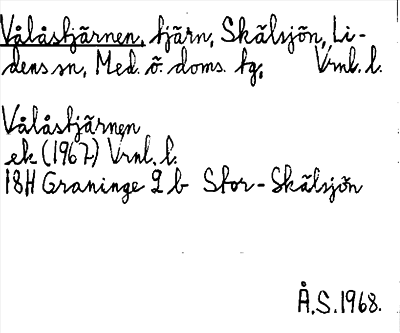 Vålåstjärnen, tjärn, Skälsjön, Li-
dens sn, Med. ö. doms. tg, Vrnl. l.
Vålåstjärnen
ek (1967) Vrnl. l.
18H Graninge 2 b Stor-Skälsjön
Å.S. 1968.